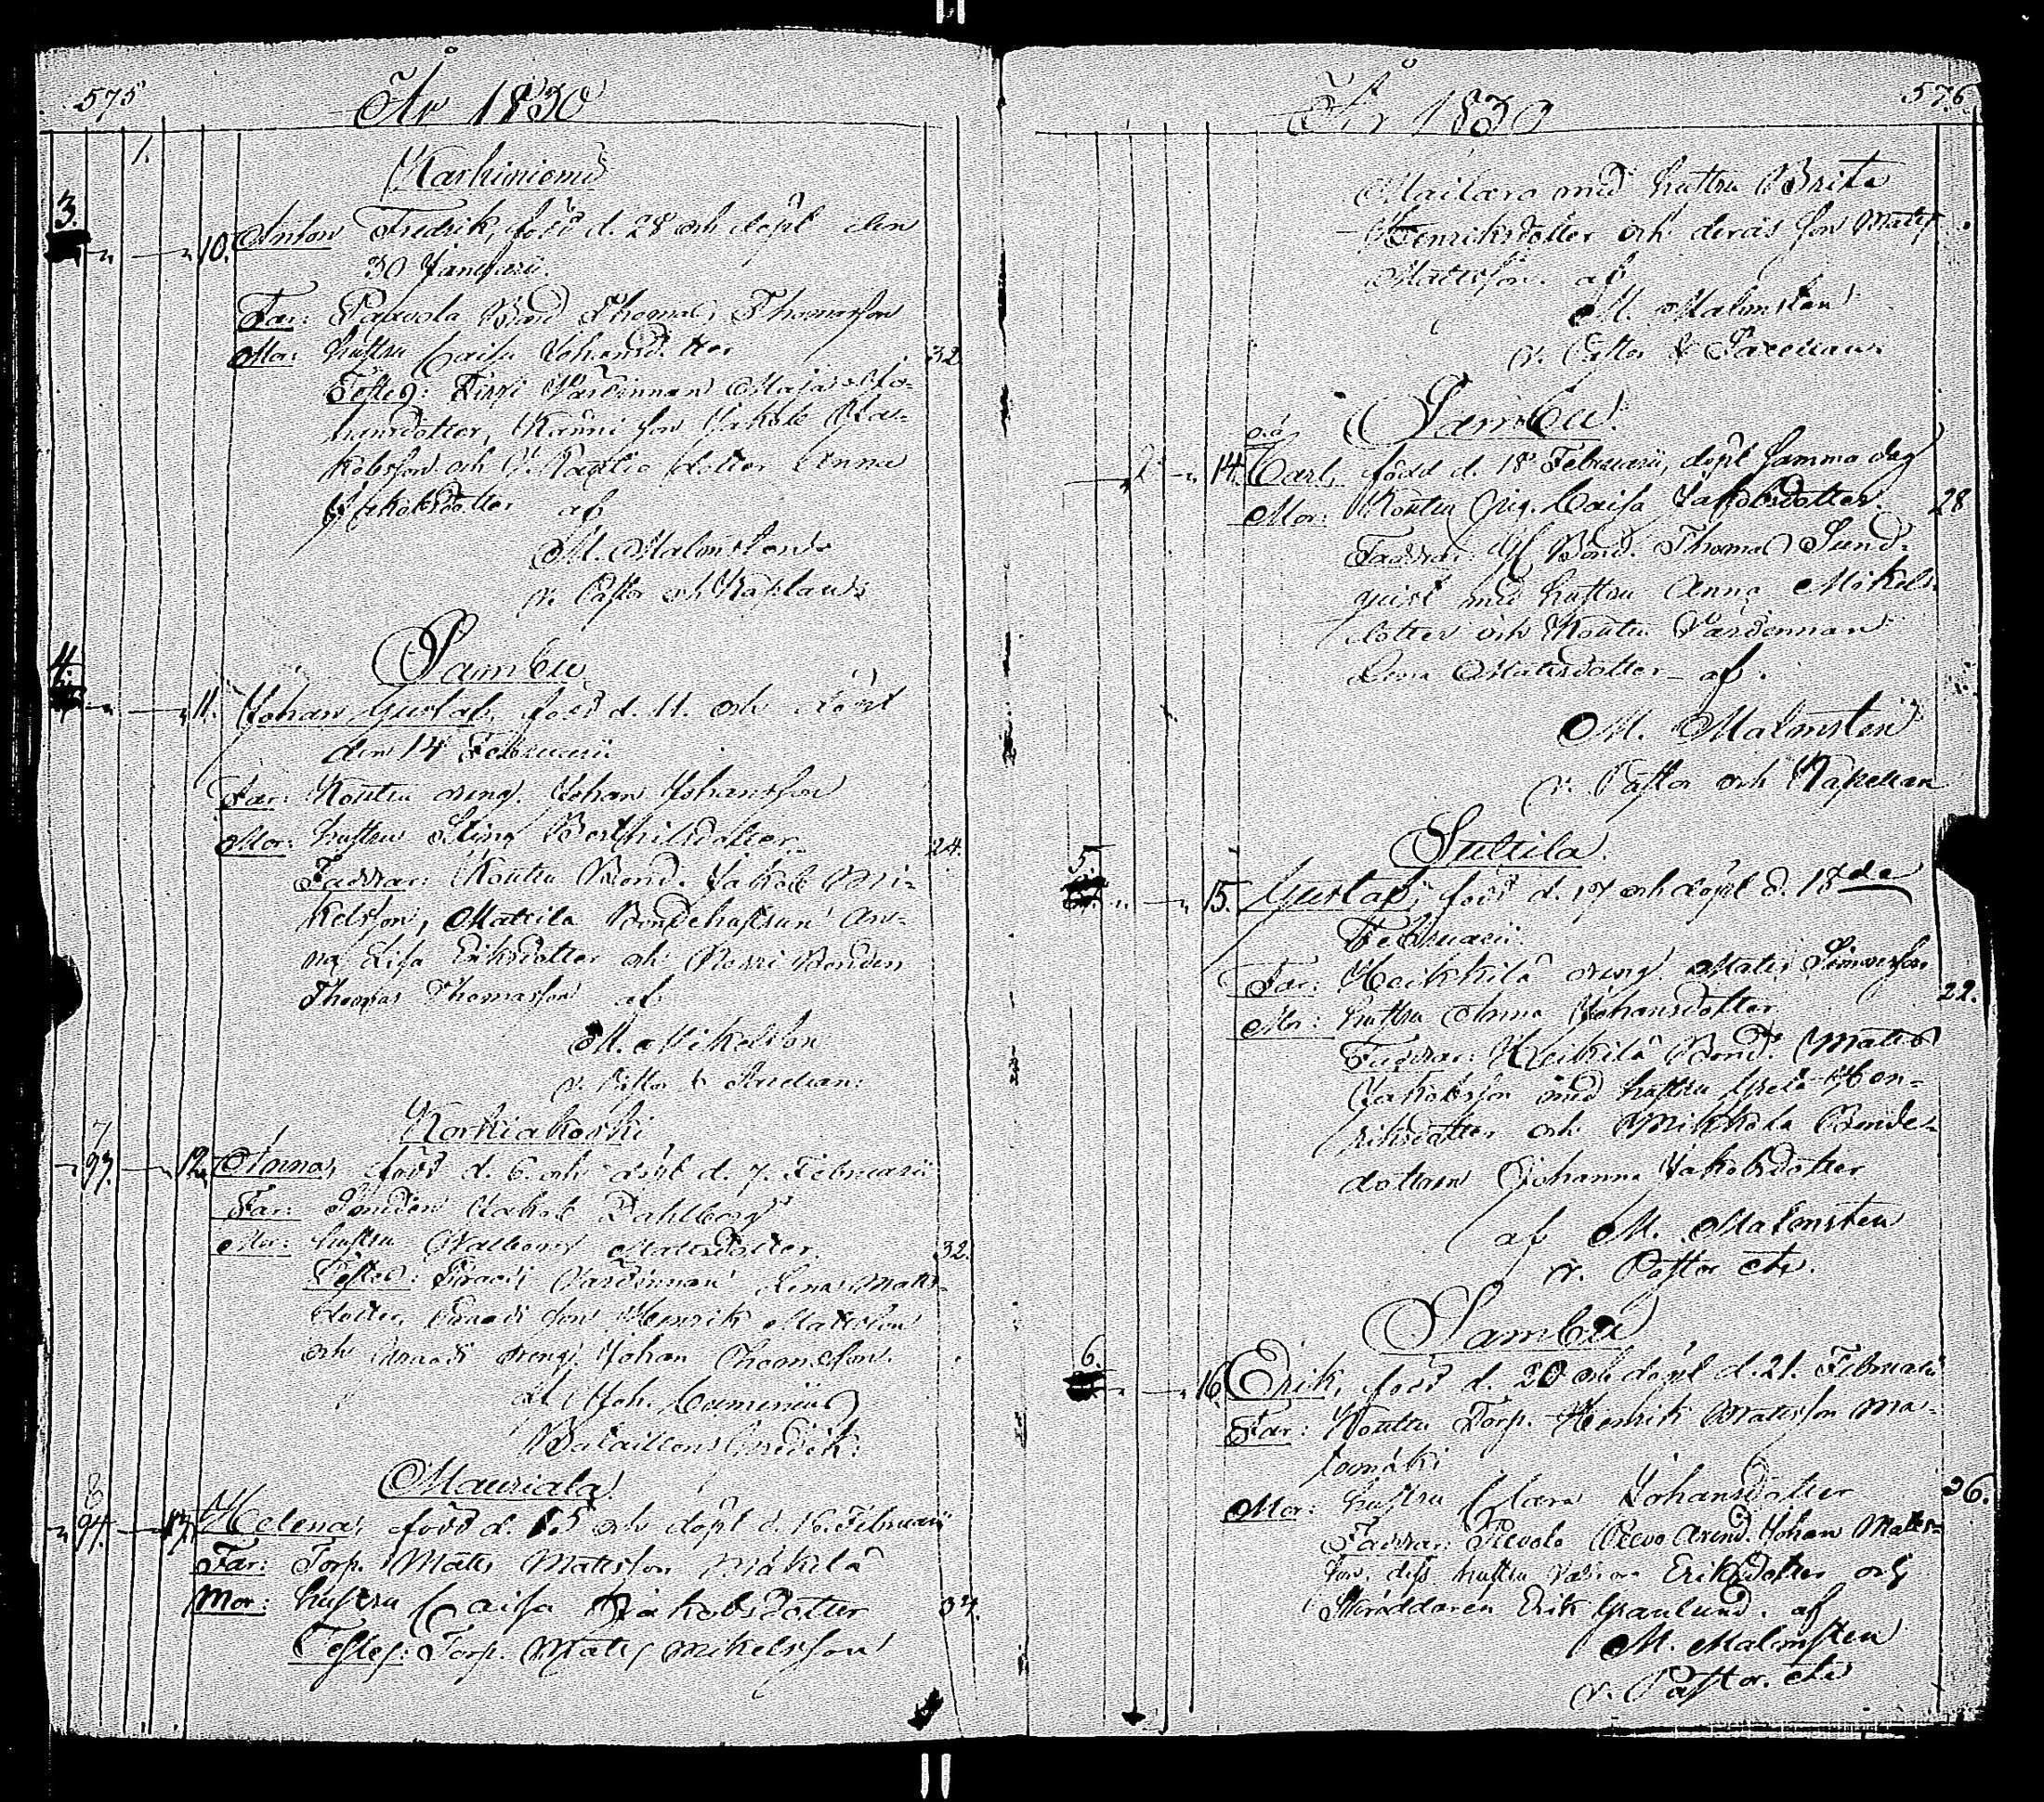 575
År 1830
1.
Karhiniemi
3.
10. Anton Fredrik, född d. 28 och döpt den
30 Januarii.
Far: Paavola Bond. Thomas Thomasson
Mor: hustru Caisa Johansdotter 32
Testes: Värdinnan Maja Jo-
hansdotter, son Jakob Ja-
kobsson och dotter Anna
Jakobsdotter af
M. Malmsten
v. Pastor och Kaplan
Sambu
4.
11. Johan Gustaf, född d. 11. och döpt
den 14 Februarii.
Far: Kouttu dreng. Johan Johansson
Mor: hustru Stina Bertilsdotter 24.
Faddrar: Kouttu Bond. Jakob Mi-
kelsson, Mattila Bondehustrun An-
na Lisa Eriksdotter och Bonden
Thomas Thomasson af
M.
v. Pastor &
Korkiakoski
7
97. 12. Anna, född d. 6. och döpt d. 7. Februarii
Far: Smeden Jakob Dahlberg
Mor: hustru Walborg Mattsdotter. 32.
Testes: Värdinnan Lena Matts-
dotter, son Henrik Mattsson
och dreng. Johan Thomasson.
af Joh. Cumenius
Bataillons Predik.
Mauriala
8
97. 13. Helena, född d. 15 och döpt d. 16. Februarii
Far: Torp. Matts Mattsson Mäkilä
Mor: hustru Caisa Jakobsdotter 37.
Testes: Torp. Matts Mikelsson
576
År 1830
Mailaro med hustru Brita
Henriksdotter och deras son Matts
Mattsson. af
M. Malmsten
v. Pastor &
Sambu.
o.ä.
2 14. Carl, född d. 18 Februarii, döpt samma dag
Mor: Kouttu Pig. Caisa Jakobsdotter. 28
Faddrar: Bond. Thomas Sund-
qvist med hustru Anna Mikels-
dotter och Kouttu Värdinnan
Lena Mattsdotter af.
M. Malmsten
v. Pastor och Kapellan
Suttila.
5.
15. Gustaf, född d. 17 och döpt d. 18de
Februarii.
Far: Heikkilä dreng. Matts Simonsson
Mor: hustru Anna Johansdotter 22.
Faddrar: Heikkilä Bond. Matts
Jakobsson med hustru Greta Hen-
riksdotter och Mikkola Bonde-
dottren Johanna Jakobsdotter
af M. Malmsten
v. Pastor etc.
Sambu
6.
16. Erik, född d. 20 och döpt d. 21. Februarii
Far: Kouttu Torp. Henrik Mattsson Ma-
tomäki
Mor: hustru Clara Johansdotter 26.
Faddrar: Arend. Johan Matts-
son, dess hustru Eriksdotter och
Skräddaren Erik Granlund. af
M. Malmsten
v. Pastor. etc